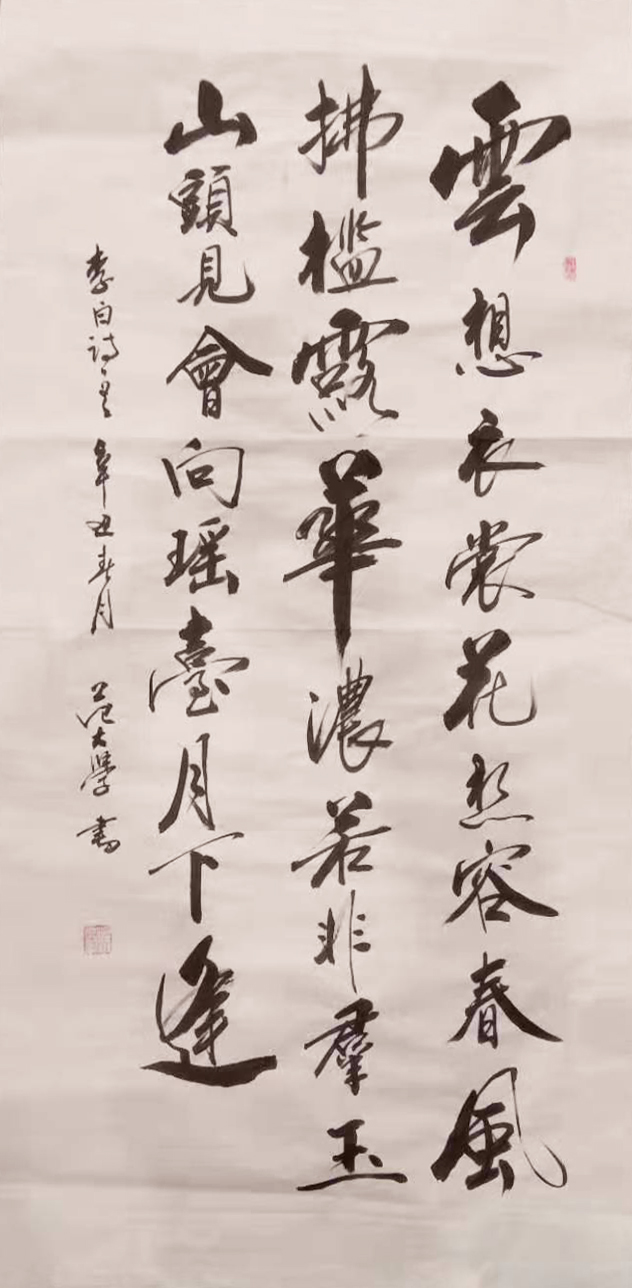 雲想衣裳花想容春風
拂檻露華濃若非羣玉
山頭見會向瑶臺月下逢
李白詩一首 辛丑春月 范大學書